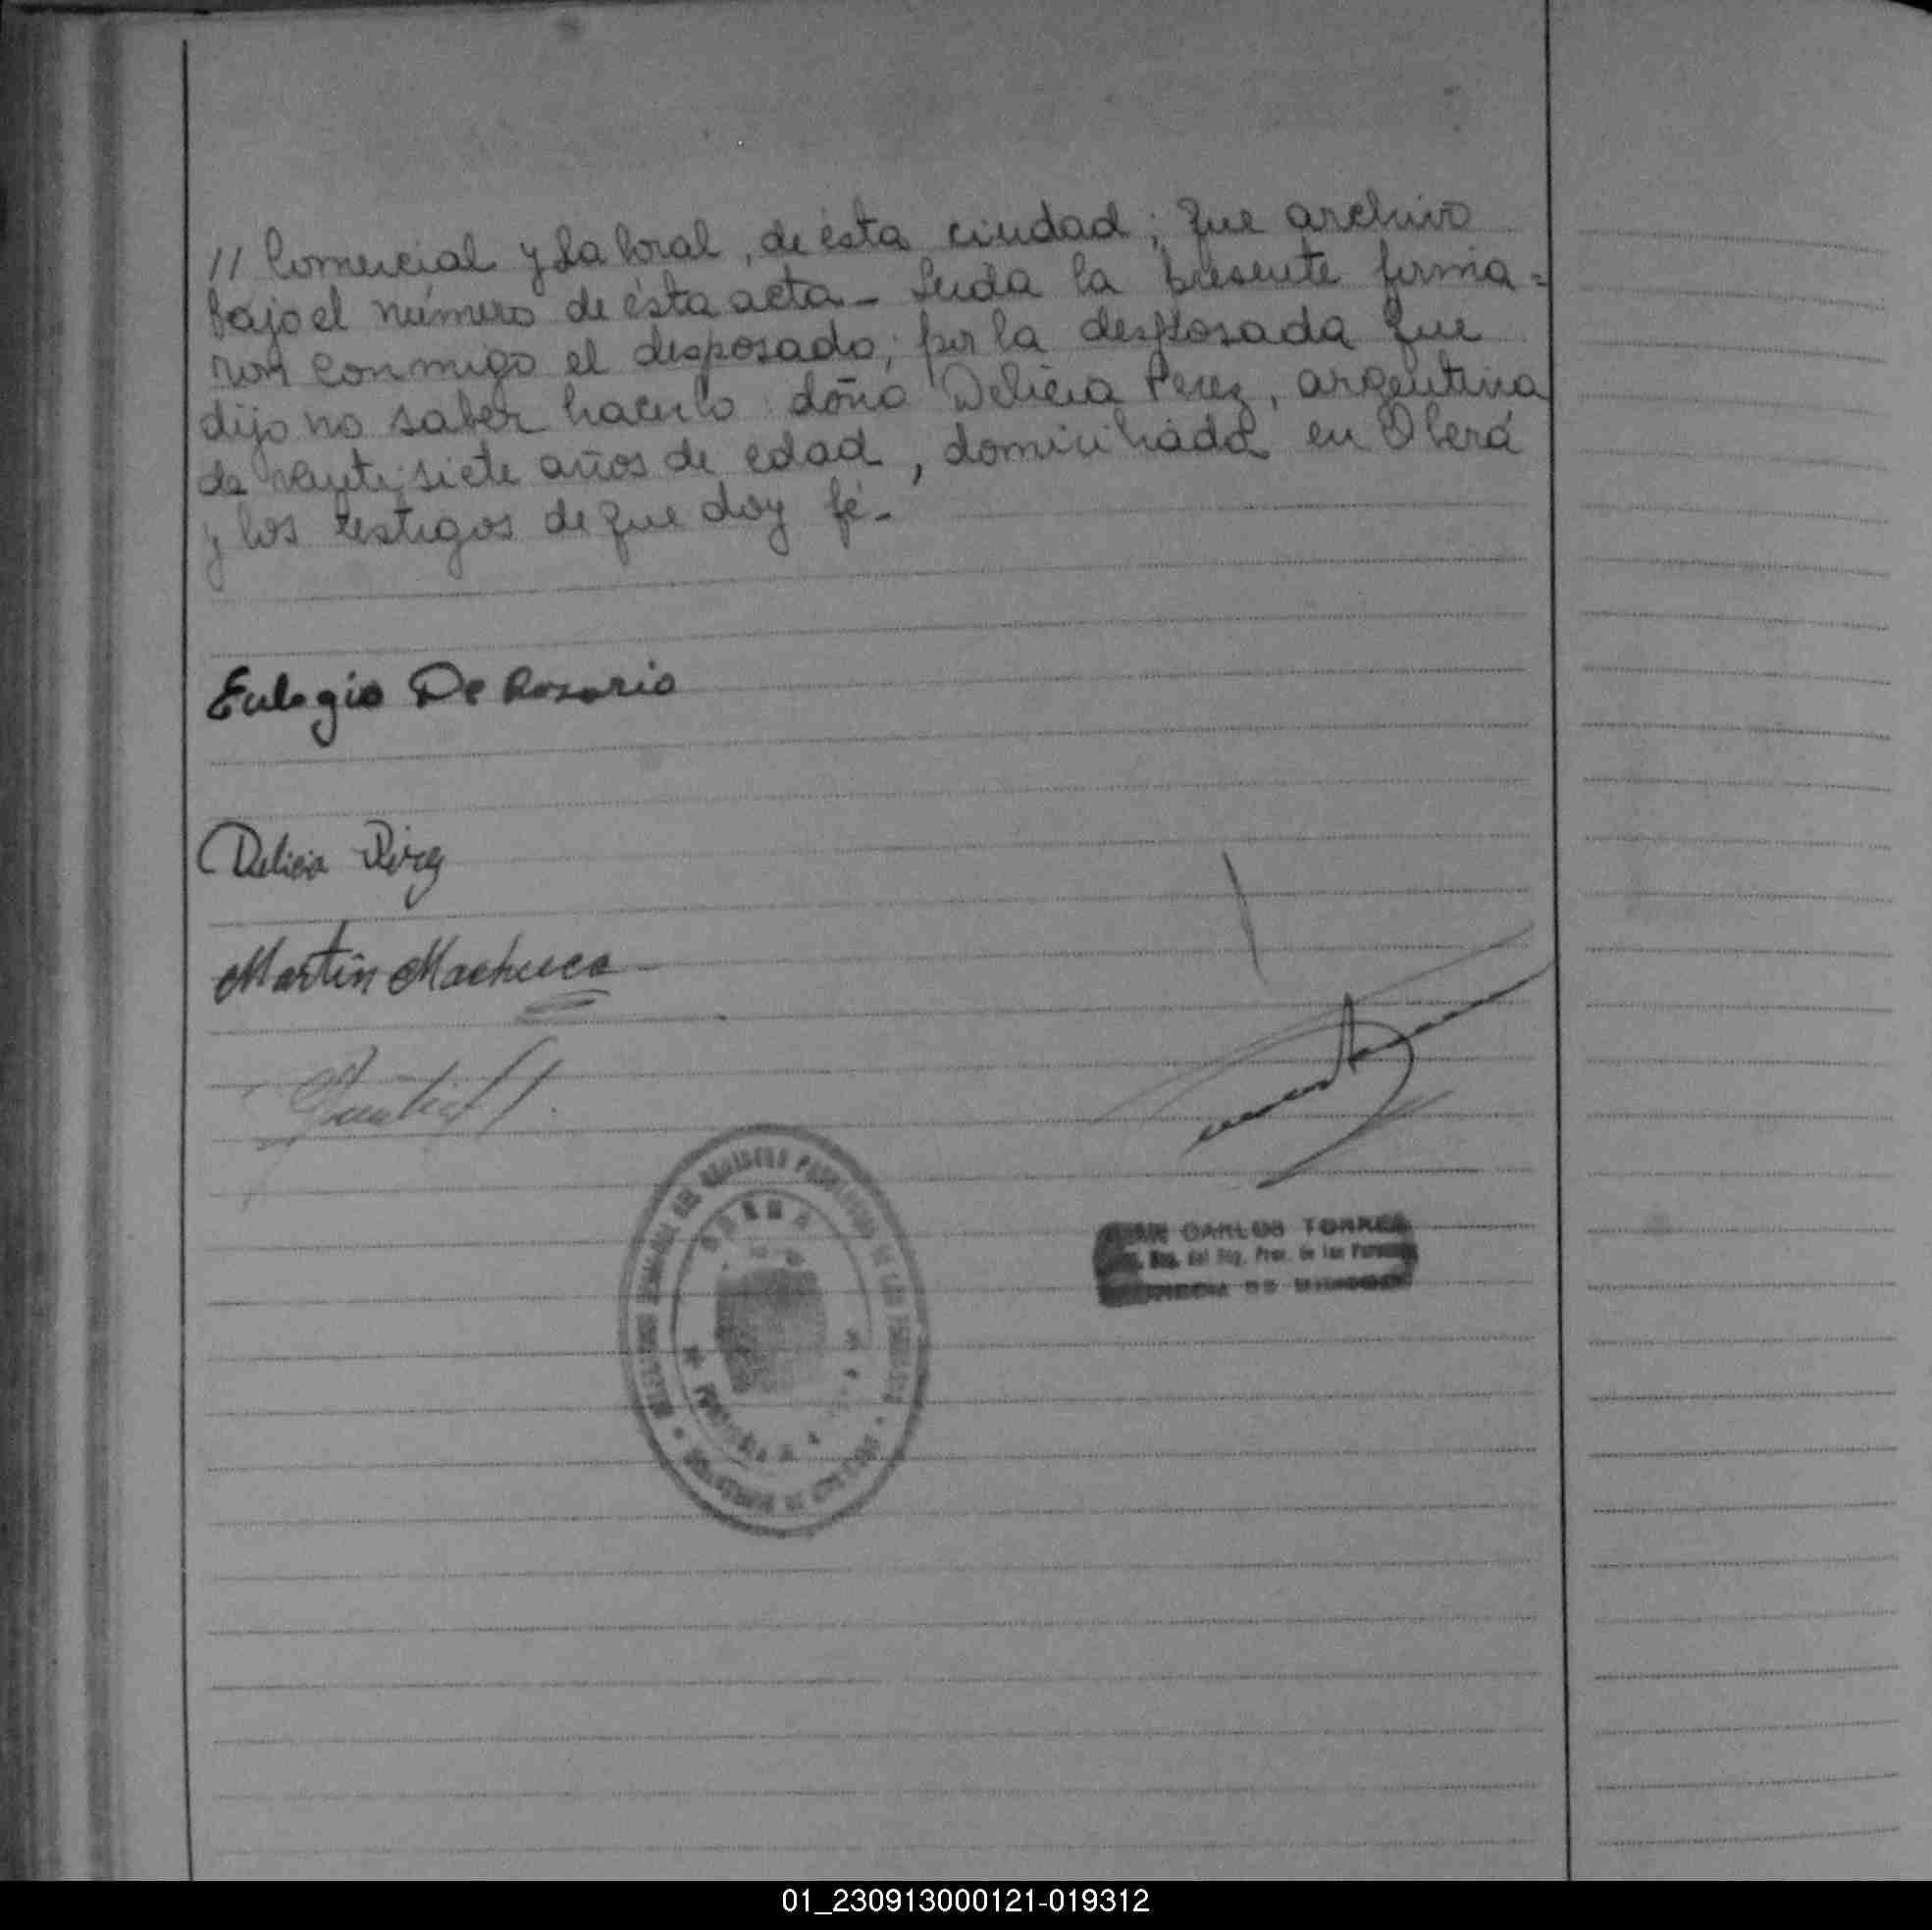 // Comercial y Laboral, de ésta ciudad; que archivo
bajo el número de ésta acta - Leída la presente firma=
ron conmigo el desposado; por la desposada que
dijo no saber hacerlo doña Delicia Perez, argentina
de veintisiete años de edad, domiciliada en Oberá
y los testigos de que doy fé.-
Eulogio De Rosario
Delicia Pirez
Martín Machuca
CARLOS TORRES
del Reg. Prov. de las
OBERA
01_230913000121-019312